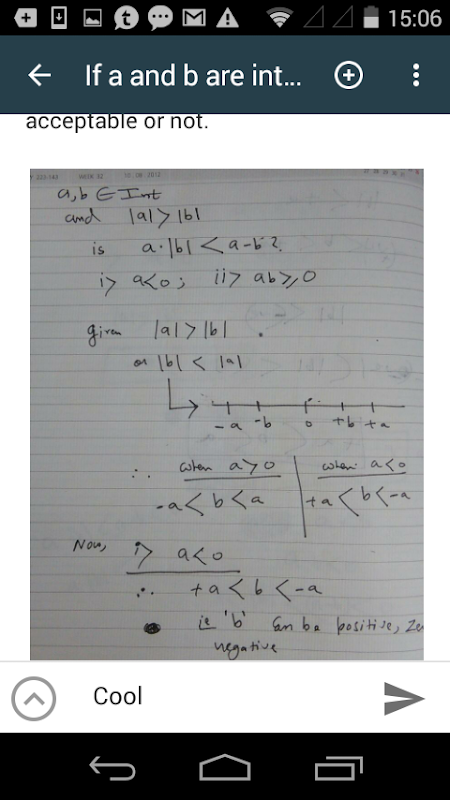 15:06
If a and b are int...
acceptable or not.
WEEK 32
a, b ∈ Int
and |a| > |b|
is a·|b| < a-b ?
i> a<0 ; ii> ab ≥, 0
given |a| > |b| .
or |b| < |a|
-a -b 0 +b +a
∴ when a>0 when a<0
-a < b < a +a < b < -a
Now, i> a<0
∴ +a < b < -a
ie 'b' Can be positive, Ze
negative
Cool